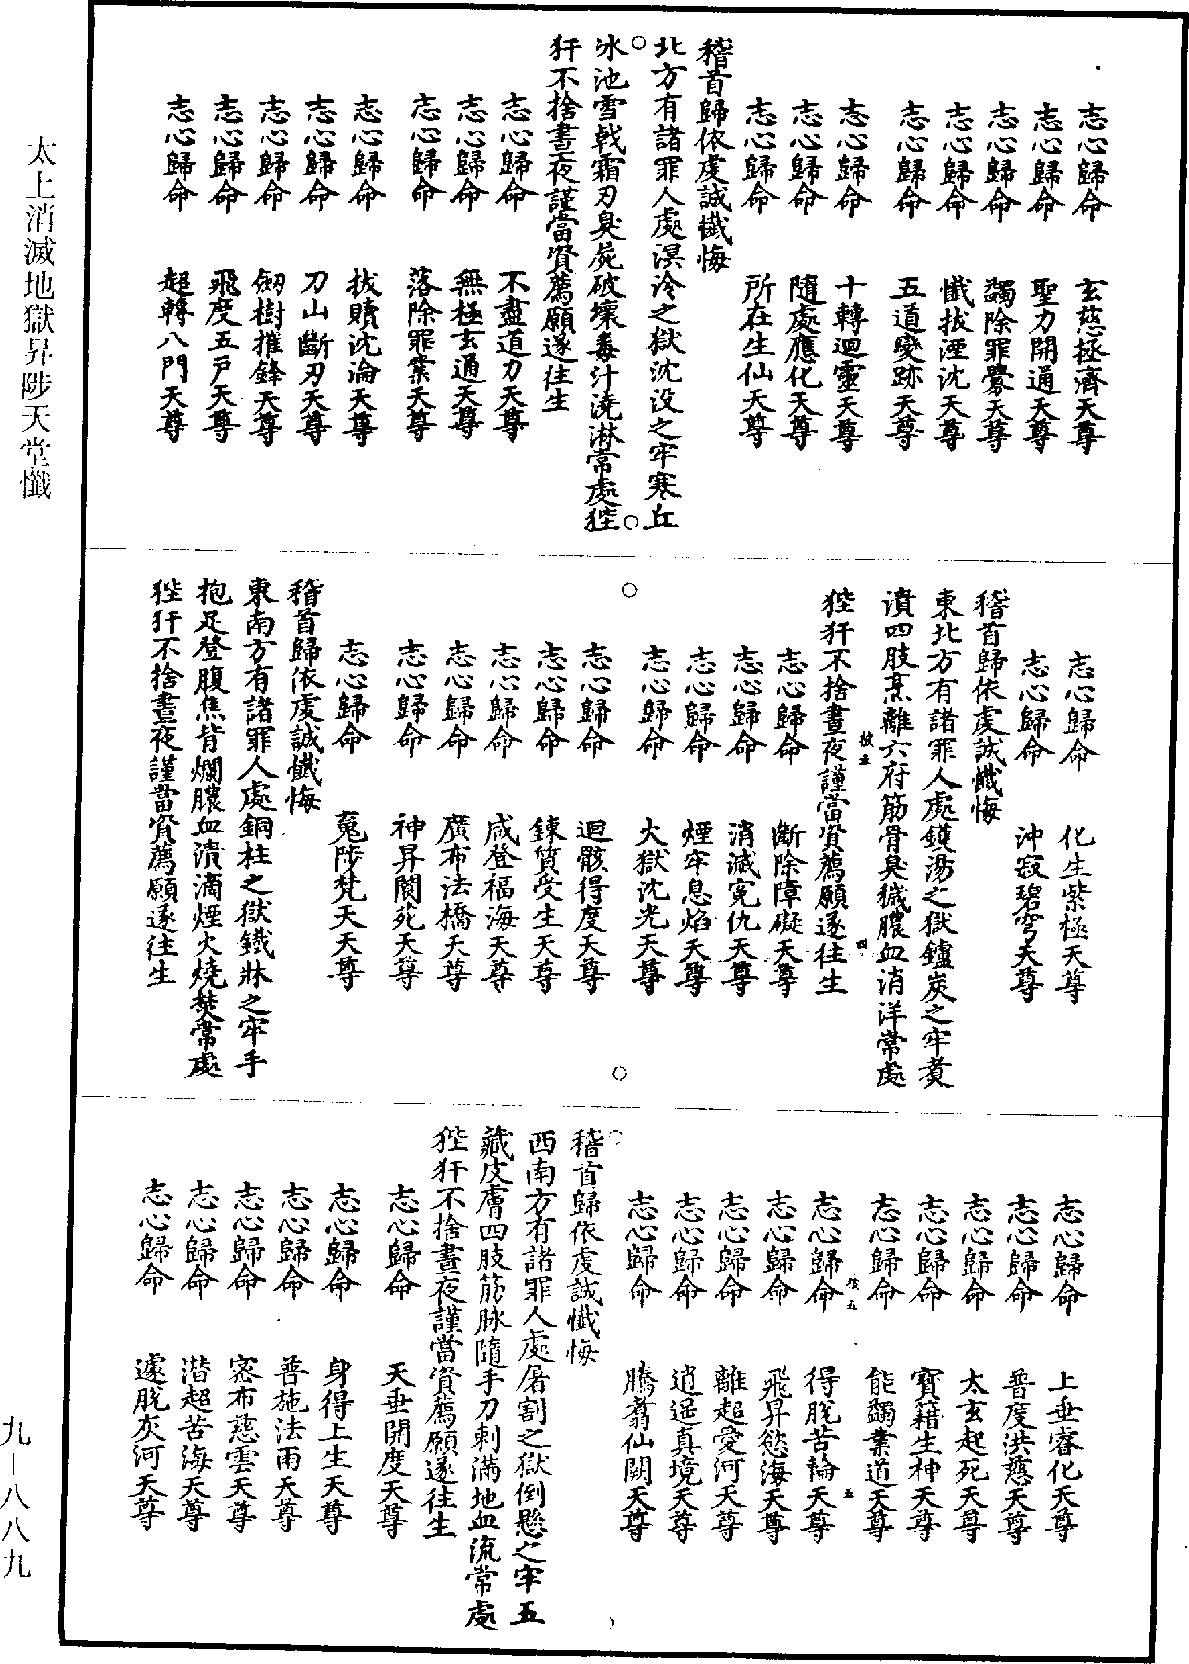 志心歸命　玄慈拯濟天尊
志心歸命　聖力開通天尊
志心歸命　蠲除罪釁天尊
志心歸命　懺拔湮沈天尊
志心歸命　五道變跡天尊
志心歸命　十轉迴靈天尊
志心歸命　隨處應化天尊
志心歸命　所在生仙天尊
稽首歸依虔誠懺悔
北方有諸罪人處溟泠之獄沈沒之牢寒丘
冰池雪戟霜刃臭屍破壞毒汁澆淋常處狴
犴不捨晝夜謹當資薦願遂往生
志心歸命　不盡道力天尊
志心歸命　無極玄通天尊
志心歸命　落除罪業天尊
志心歸命　拔贖沈淪天尊
志心歸命　刀山斷刃天尊
志心歸命　劒樹摧鋒天尊
志心歸命　飛度五戶天尊
志心歸命　超轉八門天尊
志心歸命　化生紫極天尊
志心歸命　沖寂碧穹天尊
稽首歸依虔誠懺悔
東北方有諸罪人處鑊湯之獄鑪炭之牢煑
潰四肢烹離六府筋骨臭穢膿血消洋常處
狴犴不捨晝夜謹當資薦願遂往生
志心歸命　斷除障礙天尊
志心歸命　消滅冤仇天尊
志心歸命　煙牢息焰天尊
志心歸命　火獄沈光天尊
志心歸命　迴骸得度天尊
志心歸命　鍊質受生天尊
志心歸命　咸登福海天尊
志心歸命　廣布法橋天尊
志心歸命　神昇閬苑天尊
志心歸命　䰟陟梵天天尊
稽首歸依虔誠懺悔
東南方有諸罪人處銅柱之獄鐵牀之牢手
抱足登腹焦背爛膿血潰滴煙火燒焚常處
狴犴不捨晝夜謹當資薦願遂往生
志心歸命　上垂睿化天尊
志心歸命　普度洪慈天尊
志心歸命　太玄起死天尊
志心歸命　寶籍生神天尊
志心歸命　能蠲業道天尊
志心歸命　得脫苦輪天尊
志心歸命　飛昇慾海天尊
志心歸命　離超愛河天尊
志心歸命　逍遥真境天尊
志心歸命　騰翥仙闕天尊
稽首歸依虔誠懺悔
西南方有諸罪人處屠割之獄倒懸之牢五
藏皮膚四肢筋脉隨手刀剌滿地血流常處
狴犴不捨晝夜謹當資薦願遂往生
志心歸命　天垂開度天尊
志心歸命　身得上生天尊
志心歸命　善施法雨天尊
志心歸命　密布慈雲天尊
志心歸命　潜超苦海天尊
志心歸命　遽脫灰河天尊
太上消滅地獄昇陟天堂懺
九—八八九